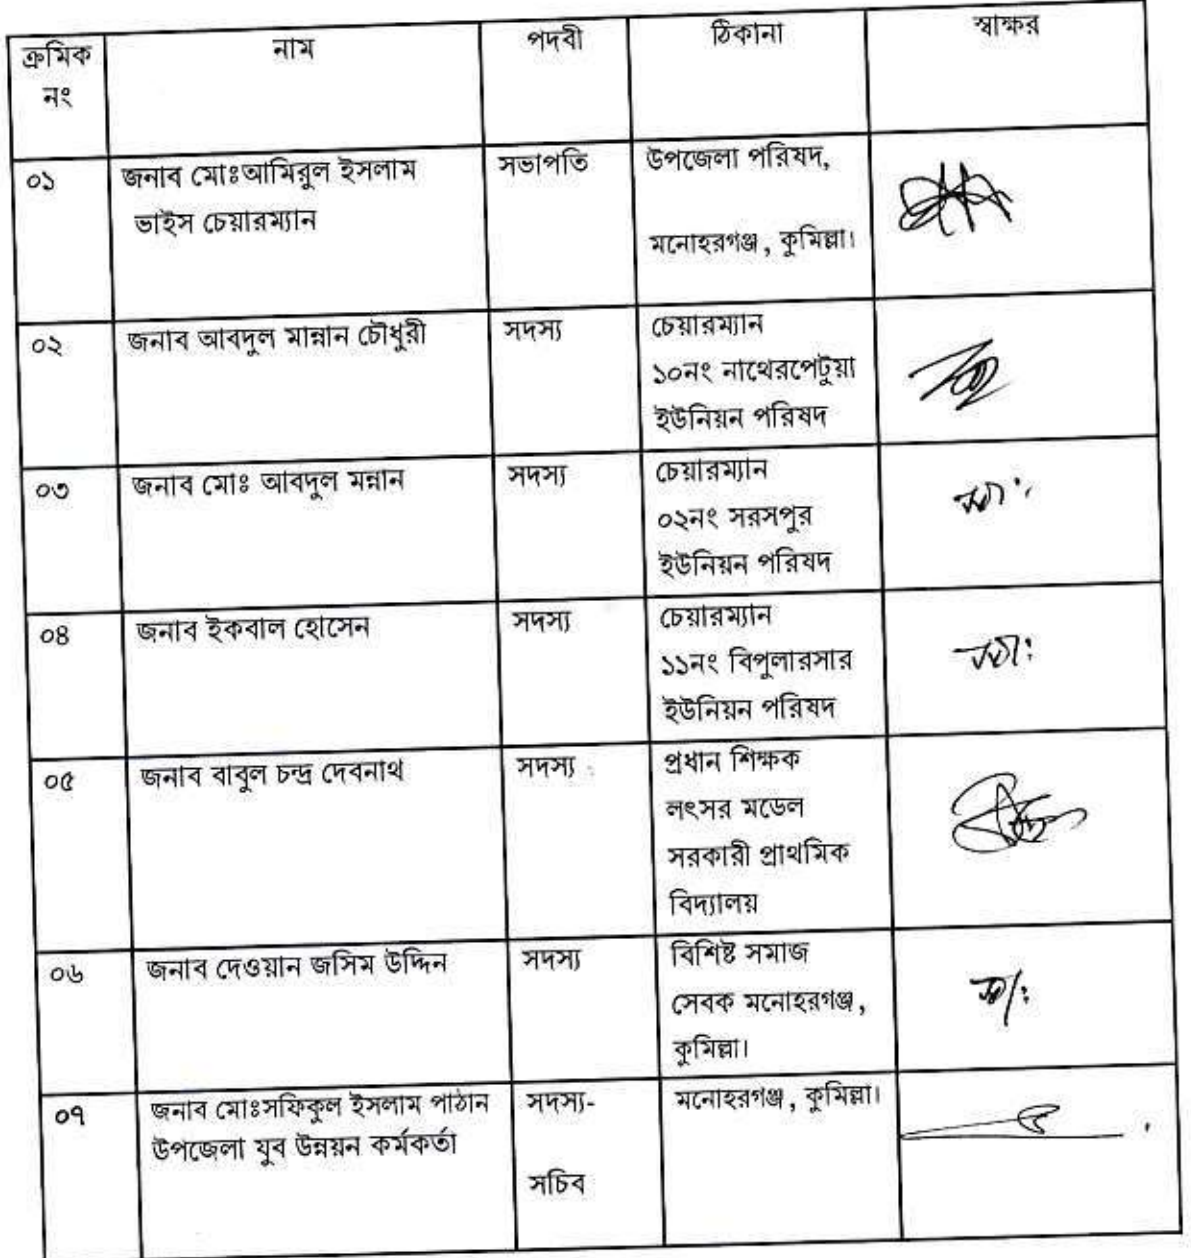 ক্রমিক নং
নাম
পদবী
ঠিকানা
স্বাক্ষর
০১
জনাব মোঃআমিরুল ইসলাম
ভাইস চেয়ারম্যান
সভাপতি
উপজেলা পরিষদ,
মনোহরগঞ্জ, কুমিল্লা।
০২
জনাব আবদুল মান্নান চৌধুরী
সদস্য
চেয়ারম্যান
১০নং নাথেরপেটুয়া
ইউনিয়ন পরিষদ
০৩
জনাব মোঃ আবদুল মন্নান
সদস্য
চেয়ারম্যান
০২নং সরসপুর
ইউনিয়ন পরিষদ
০৪
জনাব ইকবাল হোসেন
সদস্য
চেয়ারম্যান
১১নং বিপুলারসার
ইউনিয়ন পরিষদ
০৫
জনাব বাবুল চন্দ্র দেবনাথ
সদস্য
প্রধান শিক্ষক
লৎসর মডেল
সরকারী প্রাথমিক
বিদ্যালয়
০৬
জনাব দেওয়ান জসিম উদ্দিন
সদস্য
বিশিষ্ট সমাজ
সেবক মনোহরগঞ্জ,
কুমিল্লা।
০৭
জনাব মোঃসফিকুল ইসলাম পাঠান
উপজেলা যুব উন্নয়ন কর্মকর্তা
সদস্য-
সচিব
মনোহরগঞ্জ, কুমিল্লা।